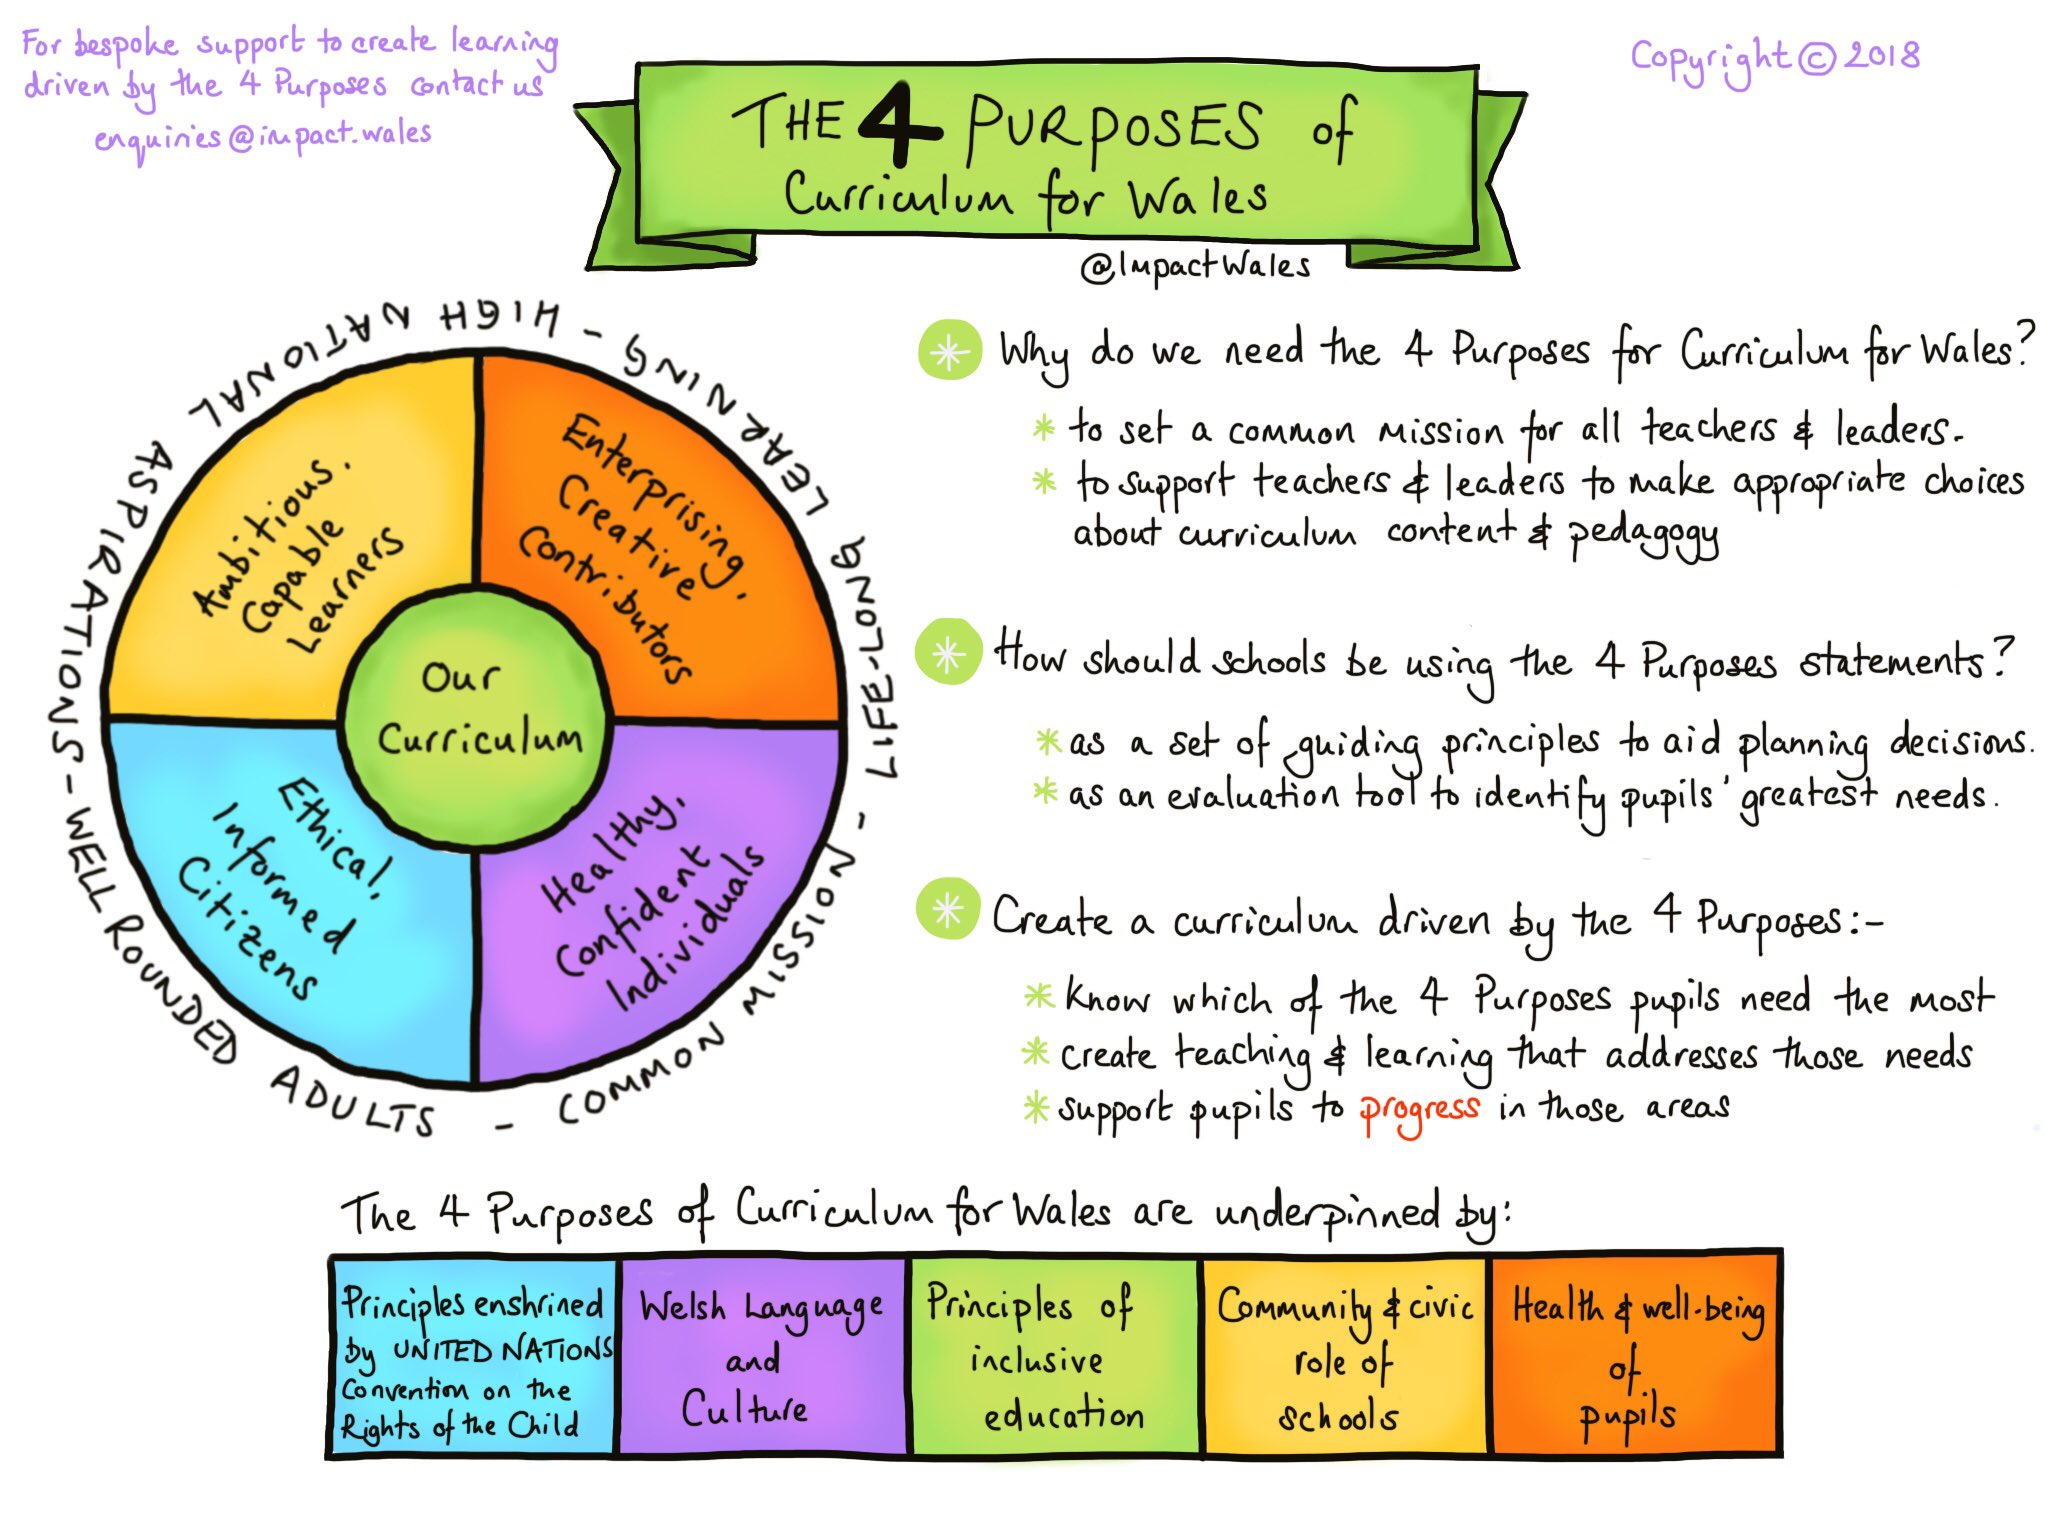 For bespoke support to create learning
driven by the 4 Purposes contact us
enquiries@impact.wales
Copyright © 2018
THE 4 PURPOSES of
Curriculum for Wales
@ImpactWales
HIGH NATIONAL ASPIRATIONS - WELL ROUNDED ADULTS - COMMON MISSION - LIFE-LONG LEARNING -
Ambitious.
Capable
Learners
Enterprising,
Creative
Contributors
Our
Curriculum
Ethical,
Informed
Citizens
Healthy,
Confident
Individuals
Why do we need the 4 Purposes for Curriculum for Wales?
* to set a common mission for all teachers & leaders.
* to support teachers & leaders to make appropriate choices
about curriculum content & pedagogy
How should schools be using the 4 Purposes statements?
* as a set of guiding principles to aid planning decisions.
* as an evaluation tool to identify pupils' greatest needs.
Create a curriculum driven by the 4 Purposes:-
* Know which of the 4 Purposes pupils need the most
* create teaching & learning that addresses those needs
* support pupils to progress in those areas
The 4 Purposes of Curriculum for Wales are underpinned by:
Principles enshrined
by UNITED NATIONS
Convention on the
Rights of the Child
Welsh Language
and
Culture
Principles of
inclusive
education
Community & civic
role of
schools
Health & well-being
of
pupils